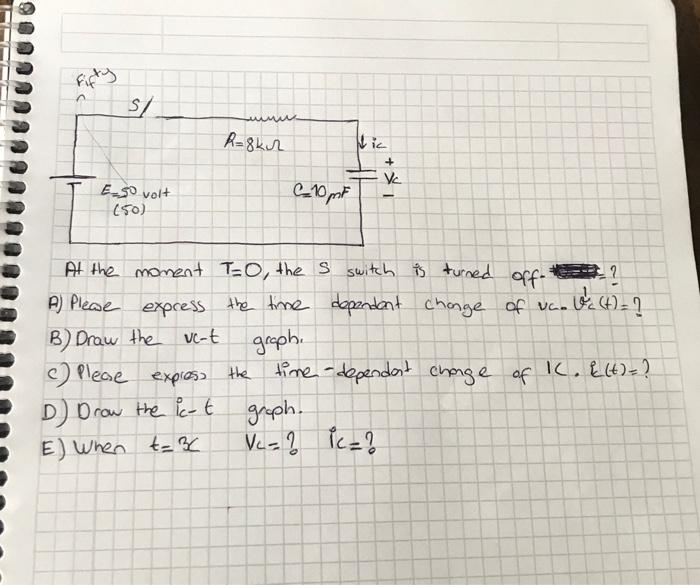 Fifty
S/
R=8kΩ
ic
+
Vc
-
E=50 volt
(50)
C=10 mF
At the moment T=0, the S switch is turned off- =?
A) Please express the time dependant change of vc. Vc(t)=?
B) Draw the vc-t graph.
C) Please express the time-dependant change of IC. ic(t)=?
D) Draw the ic-t graph.
E) When t= Vc=? ic=?